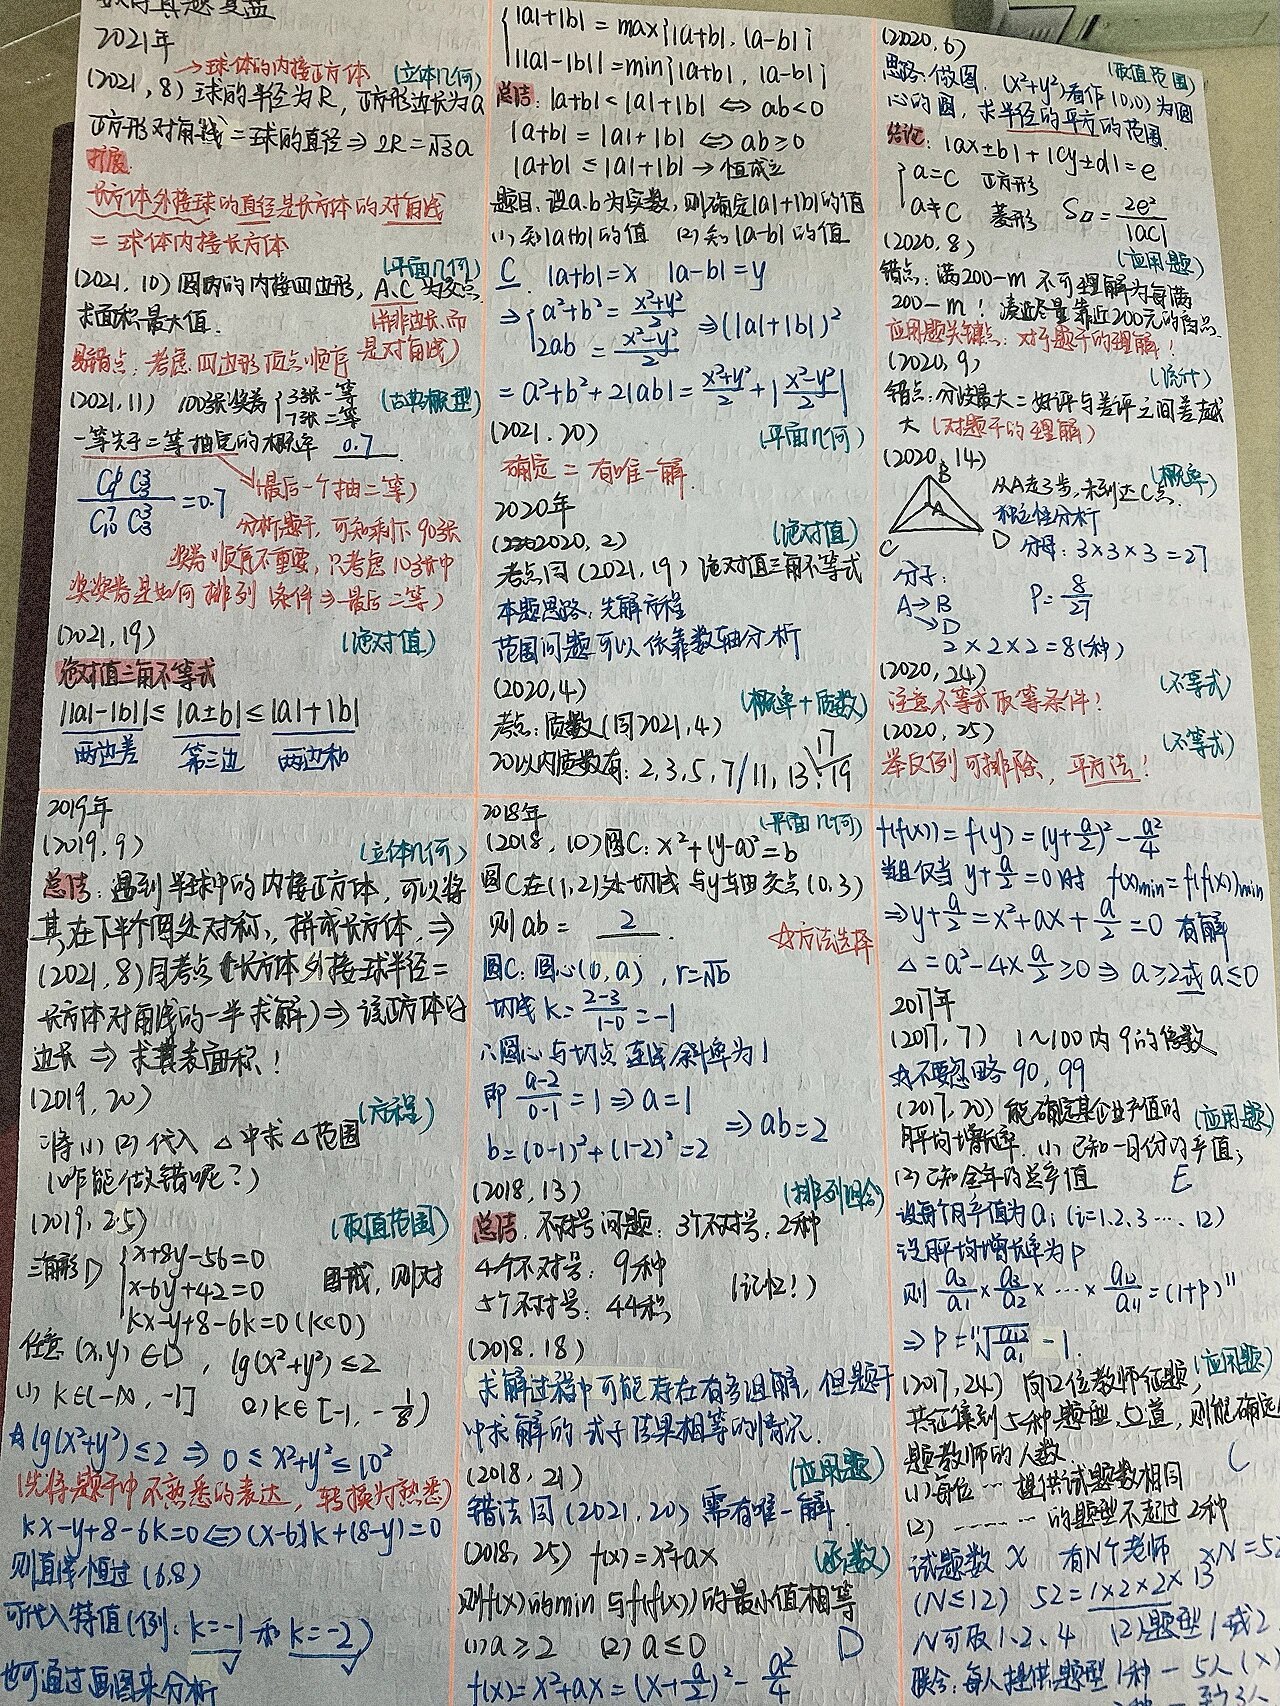 数学真题复盘
2021年
→球体的内接正方体 (立体几何)
(2021, 8) 球的半径为R, 正方形边长为a
正方形对角线=球的直径⇒ 2R=√3a
扩展
长方体外接球的直径是长方体的对角线
= 球体内接长方体
(平面几何)
(2021, 10) 圆内的内接四边形, A、C 为交点
求面积最大值. (并非边长,而
易错点: 考虑四边形顶点顺序 是对角线)
(2021, 11) 100张奖券 { 3张一等 (古典概型)
7张二等
一等先于二等抽完的概率 0.7
(最后一个抽二等)
=0.7
分析题干, 可知剩下90张
奖券顺序不重要, 只考虑10张中
奖奖券是如何排列 条件⇒最后二等)
(2021, 19) (绝对值)
绝对值三角不等式
||a|-|b||≤|a±b|≤|a|+|b|
两边差 第三边 两边和
{ |a|+|b| = max{|a+b|, |a-b|}
||a|-|b|| = min{|a+b|, |a-b|}
总结: |a+b|<|a|+|b| ⇔ ab<0
|a+b| = |a|+|b| ⇔ ab≥0
|a+b| ≤ |a|+|b| → 恒成立
题目. 设a.b为实数, 则确定|a|+|b|的值
(1) 知|a+b|的值 (2) 知|a-b|的值
C |a+b|=x |a-b|=y
⇒ { a²+b² = (x²+y²)/2
2ab = (x²-y²)/2 ⇒(|a|+|b|)²
= a²+b²+2|ab| = (x²+y²)/2 + |(x²-y²)/2|
(2021. 20) (平面几何)
确定 = 有唯一解.
2020年
(2020, 2) (绝对值)
考点同 (2021, 19) 绝对值三角不等式
本题思路: 先解方程
范围问题可以依靠数轴分析
(2020, 4) (概率+质数)
考点: 质数 (同2021, 4)
20以内质数有: 2, 3, 5, 7, 11, 13, 17, 19
(2020, 6) (取值范围)
思路: 做图. (x²+y²)看作(0,0)为圆
心的圆, 求半径的平方的范围.
结论: |ax±b|+|cy±d|=e
{ a=c 正方形
a≠c 菱形 S=2e²/|ac|
(2020, 8) (应用题)
错点: 满200-m 不可理解为每满
200-m! 凑近尽量靠近200元的商品
应用题关键点: 对于题干的理解!
(2020, 9) (统计)
错点: 分歧最大=好评与差评之间差越
大 (对题干的理解)
(2020, 14) (概率)
B 从A走3步, 未到达C点.
A 独立性分析
C D 分母: 3×3×3=27
分子:
A→B P=8/27
→D
2×2×2=8(种)
(2020, 24) (不等式)
注意不等式取等条件!
(2020, 25) (不等式)
举反例可排除, 平方法!
2019年
(2019, 9) (立体几何)
总结: 遇到半球中的内接正方体, 可以将
其在下半个图处对称, 拼成长方体. ⇒
(2021, 8)同考点 (长方体外接球半径=
长方体对角线的一半求解)⇒该正方体的
边长 ⇒ 求其表面积!
(2019, 20) (方程)
将(1) (2) 代入 △ 中求△范围
(咋能做错呢?)
(2019, 25) (取值范围)
三角形D { x+8y-56=0
x-6y+42=0 围成, 则对
kx-y+8-6k=0(k<0)
任意 (x,y)∈D, lg(x²+y²)≤2
(1) k∈(-∞, -1] (2) k∈[-1, -1/8)
☆lg(x²+y²)≤2 ⇒ 0≤x²+y²≤10²
(先将题干中不熟悉的表达, 转换为熟悉)
kx-y+8-6k=0⇔(x-6)k+(8-y)=0
则直线恒过 (6,8)
可代入特值(例: k=-1 和 k=-2)
也可通过画图来分析
2018年 (平面几何)
(2018, 10) 圆C: x²+(y-a)²=b
圆C在(1,2)处切线与y轴交点(0,3)
则ab= 2 . ☆方法选择
圆C: 圆心(0, a), r=√b
切线 k=(2-3)/(1-0)=-1
∴圆心与切点连线斜率为1
即 (a-2)/(0-1)=1⇒a=1
⇒ab=2
b=(0-1)²+(1-2)²=2
(2018, 13) (排列组合)
总结. 不对号问题: 3个不对号, 2种
4个不对号: 9种 (记忆!)
5个不对号: 44种
(2018. 18)
求解过程中可能存在有多组解, 但题干
中求解的式子结果相等的情况.
(2018, 21) (应用题)
错法同 (2021, 20) 需有唯一解
(2018, 25) f(x)=x²+ax (函数)
则f(x)的min与f(f(x))的最小值相等
(1)a≥2 (2) a≤0 D
f(x)=x²+ax=(x+a/2)²-a²/4
f(f(x))=f(y)=(y+a/2)²-a²/4
当且仅当 y+a/2=0时 f(x)min=f(f(x))min
⇒y+a/2=x²+ax+a/2=0 有解
△=a²-4×a/2≥0⇒a≥2或a≤0
2017年
(2017, 7) 1~100内9的倍数
☆不要忽略 90, 99
(2017, 20) 能确定某企业产值的 (应用题)
月平均增长率. (1) 已知一月份的产值;
(2) 已知全年的总产值 E
设每个月产值为ai (i=1,2,3…, 12)
设月平均增长率为p
则 a₂/a₁×a₃/a₂×…×a₁₂/a₁₁=(1+p)¹¹
⇒p=¹¹√(a₁₂/a₁)-1. (应用题)
(2017, 24) 向12位教师征题,
共征集到5种题型, 52道, 则能确定
题教师的人数. C
(1)每位…提供试题数相同
(2)……的题型不超过2种
试题数x 有N个老师 xN=52
(N≤12) 52=1×2×2×13
N可取1、2、4 (2)题型1或2
联合: 每人提供题型1种—5人(×)